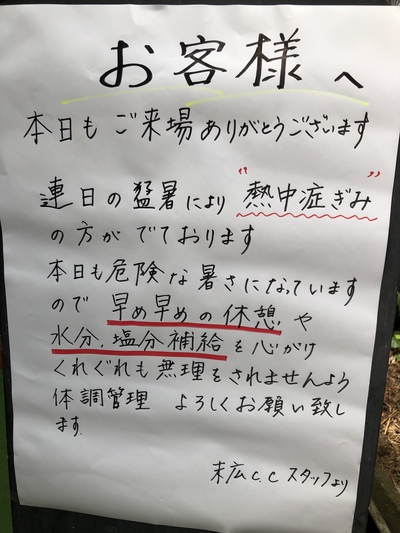 お客様へ
本日もご来場ありがとうございます
連日の猛暑により"熱中症ぎみ"
の方がでております
本日も危険な暑さになっています
ので早め早めの休憩や
水分、塩分補給を心がけ
くれぐれも無理をされませんよう
体調管理 よろしくお願い致し
ます。
末広C.Cスタッフより